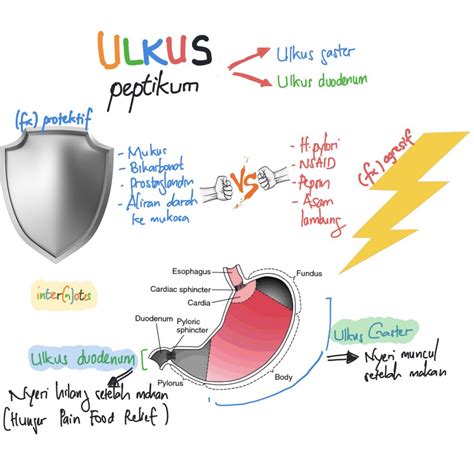 ULKUS
peptikum
Ulkus gaster
Ulkus duodenum
(fx) protektif
- Mukus
- Bikarbonat
- Prostaglandin
- Aliran darah
ke mukosa
VS
- H.pylori
- NSAID
- Pepsin
- Asam
lambung
(fx) agresif
inter(n)otes
Esophagus
Cardiac sphincter
Cardia
Fundus
Duodenum
Pyloric
sphincter
Pylorus
Body
Ulkus duodenum
Nyeri hilang setelah makan
(Hunger Pain Food Relief)
Ulkus Gaster
Nyeri muncul
setelah makan